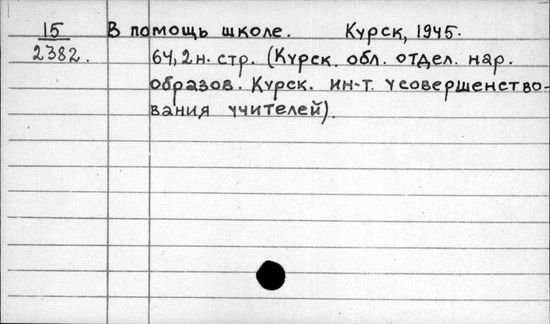 15 В помощь школе. Курск, 1945.
2382. 64, 2 н. стр. (Курск. обл. отдел. нар.
образов. Курск. ин-т. усовершенство-
вания учителей).